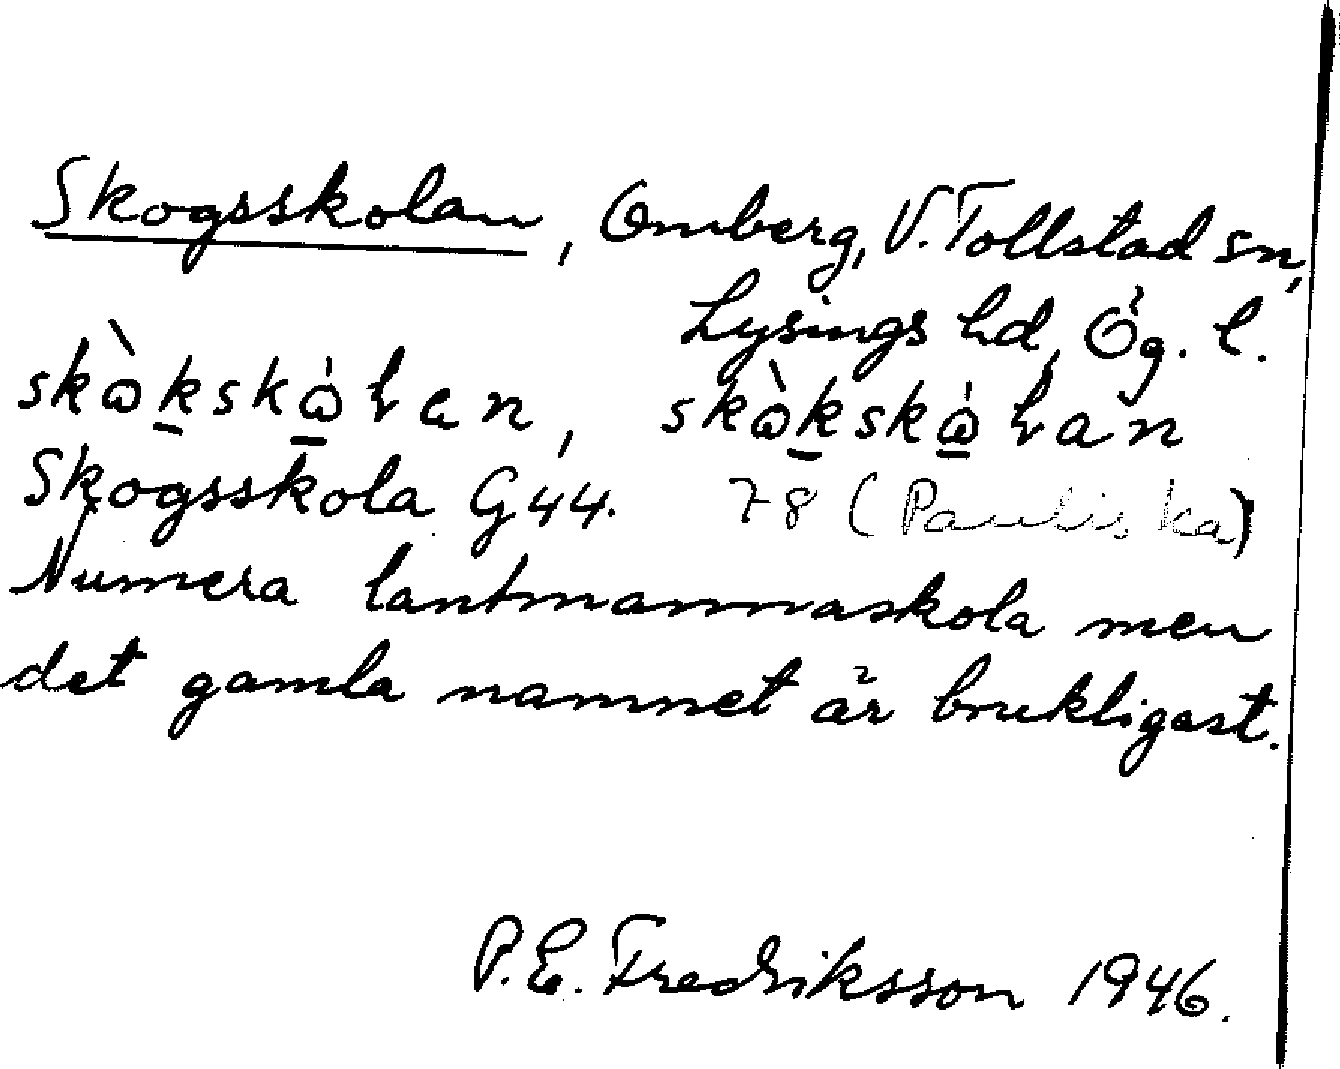 Skogsskolan, Omberg, V. Tollstad sn,
Lysings hd, Ög. l.
skὼkskώlan, skὼkskώlan
Skogsskola G 44. 78 (Pauliska)
Numera lantmannaskola men
det gamla namnet är brukligast.
P.E. Fredriksson 1946.